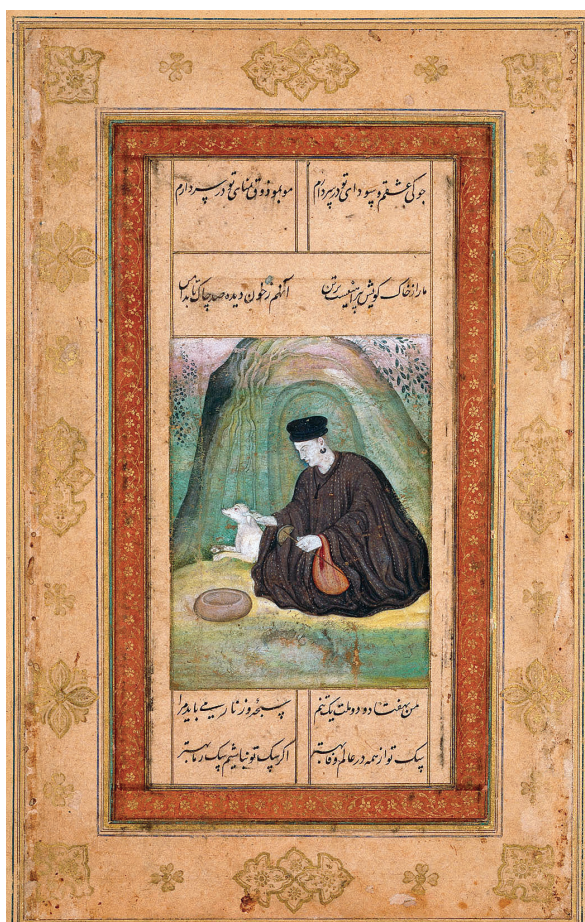 جوکی عشقم و سودای تو در سر دارم موبمو ذوق تمنای تو در سر دارم
ما را ز خاک کویش پیراهنیست بر تن آنهم ز خون دیده صد چاک تا بدامن
من بهفتاد و دو ملت یک تنم سبحه و زنار می باید مرا
سگ تو از همه در عالم وفا بهتر اگر سگ تو نباشیم سگ ز ما بهتر